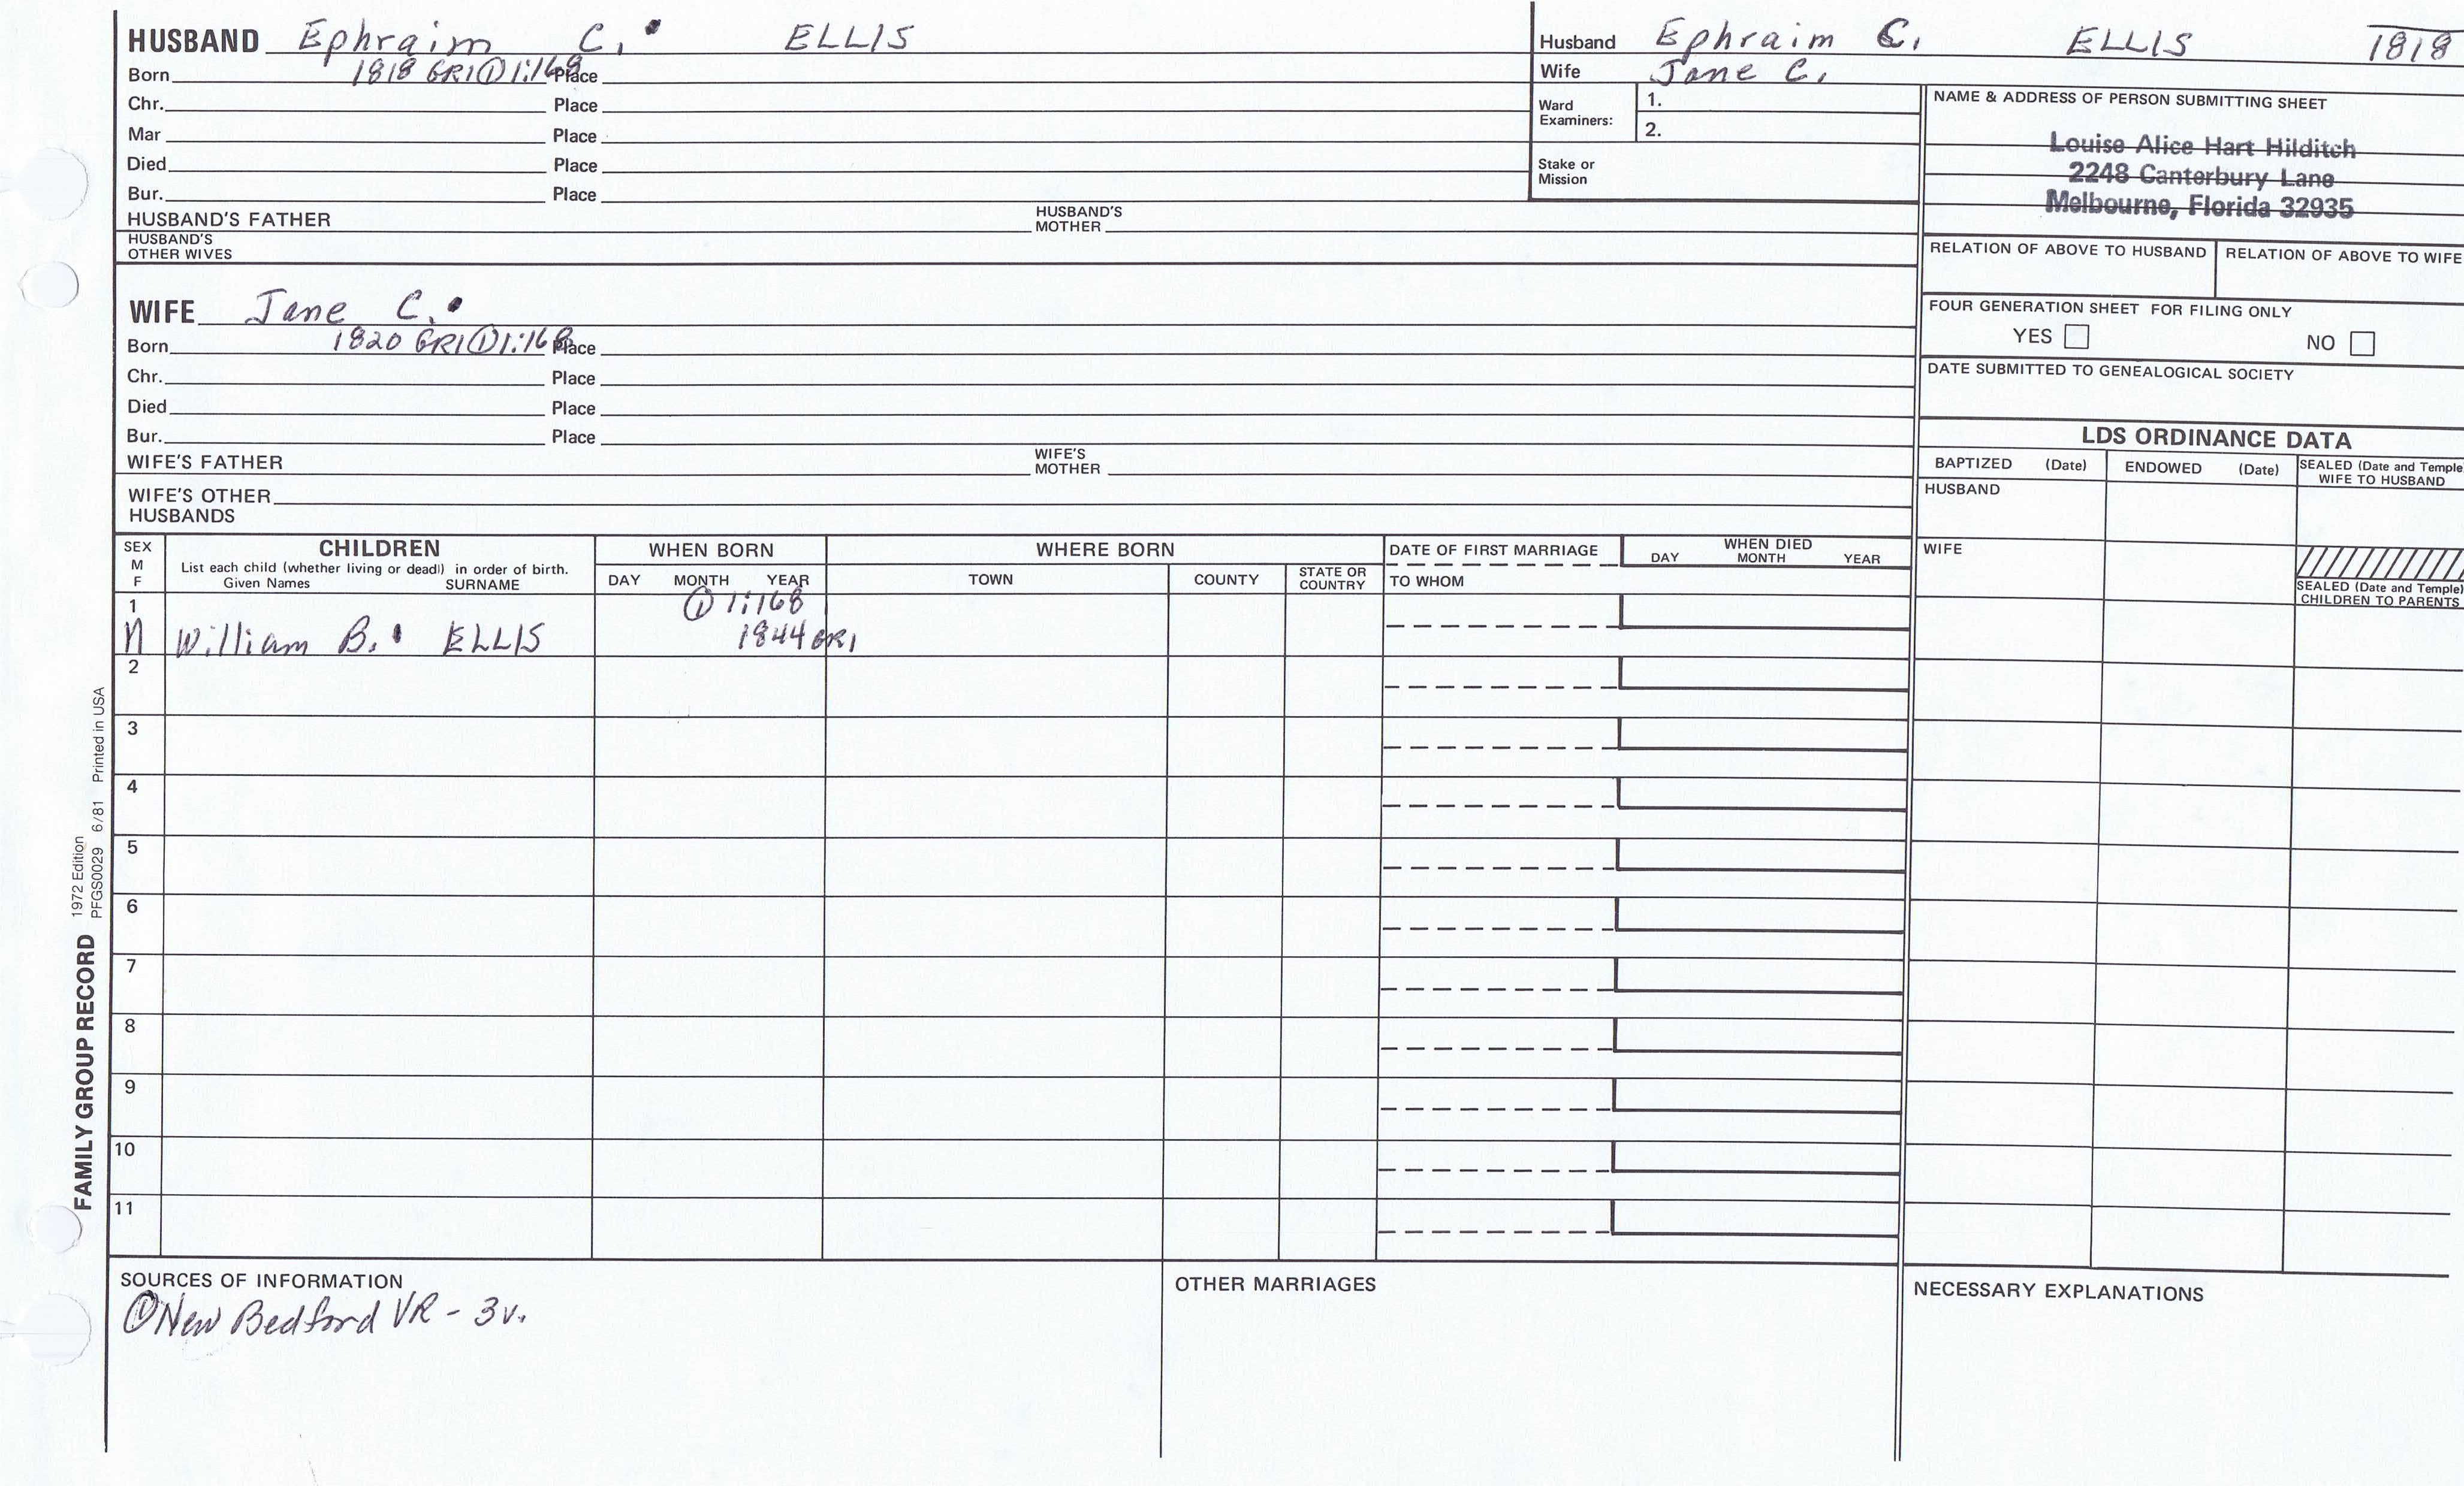 HUSBAND Ephraim C. ELLIS
Born 1818 GR1 ① 1:168 Place
Chr. Place
Mar Place
Died Place
Bur. Place
HUSBAND'S FATHER HUSBAND'S MOTHER
HUSBAND'S OTHER WIVES
Husband Ephraim C. ELLIS 1818
Wife Jane C.
Ward Examiners: 1.
2.
Stake or Mission
NAME & ADDRESS OF PERSON SUBMITTING SHEET
Louise Alice Hart Hilditch
2248 Canterbury Lane
Melbourne, Florida 32935
RELATION OF ABOVE TO HUSBAND RELATION OF ABOVE TO WIFE
FOUR GENERATION SHEET FOR FILING ONLY
YES NO
DATE SUBMITTED TO GENEALOGICAL SOCIETY
WIFE Jane C.
Born 1820 GR1 ① 1:168 Place
Chr. Place
Died Place
Bur. Place
WIFE'S FATHER WIFE'S MOTHER
WIFE'S OTHER HUSBANDS
LDS ORDINANCE DATA
BAPTIZED (Date) ENDOWED (Date) SEALED (Date and Temple) WIFE TO HUSBAND
HUSBAND
WIFE
SEALED (Date and Temple) CHILDREN TO PARENTS
SEX M F
CHILDREN
List each child (whether living or dead) in order of birth.
Given Names SURNAME
WHEN BORN
DAY MONTH YEAR
WHERE BORN
TOWN COUNTY STATE OR COUNTRY
DATE OF FIRST MARRIAGE
TO WHOM
WHEN DIED
DAY MONTH YEAR
1 ① 1:168
M William B. ELLIS 1844 GR1
2
3
4
5
6
7
8
9
10
11
SOURCES OF INFORMATION
① New Bedford VR - 3v.
OTHER MARRIAGES
NECESSARY EXPLANATIONS
FAMILY GROUP RECORD
1972 Edition
PFGS0029 6/81 Printed in USA